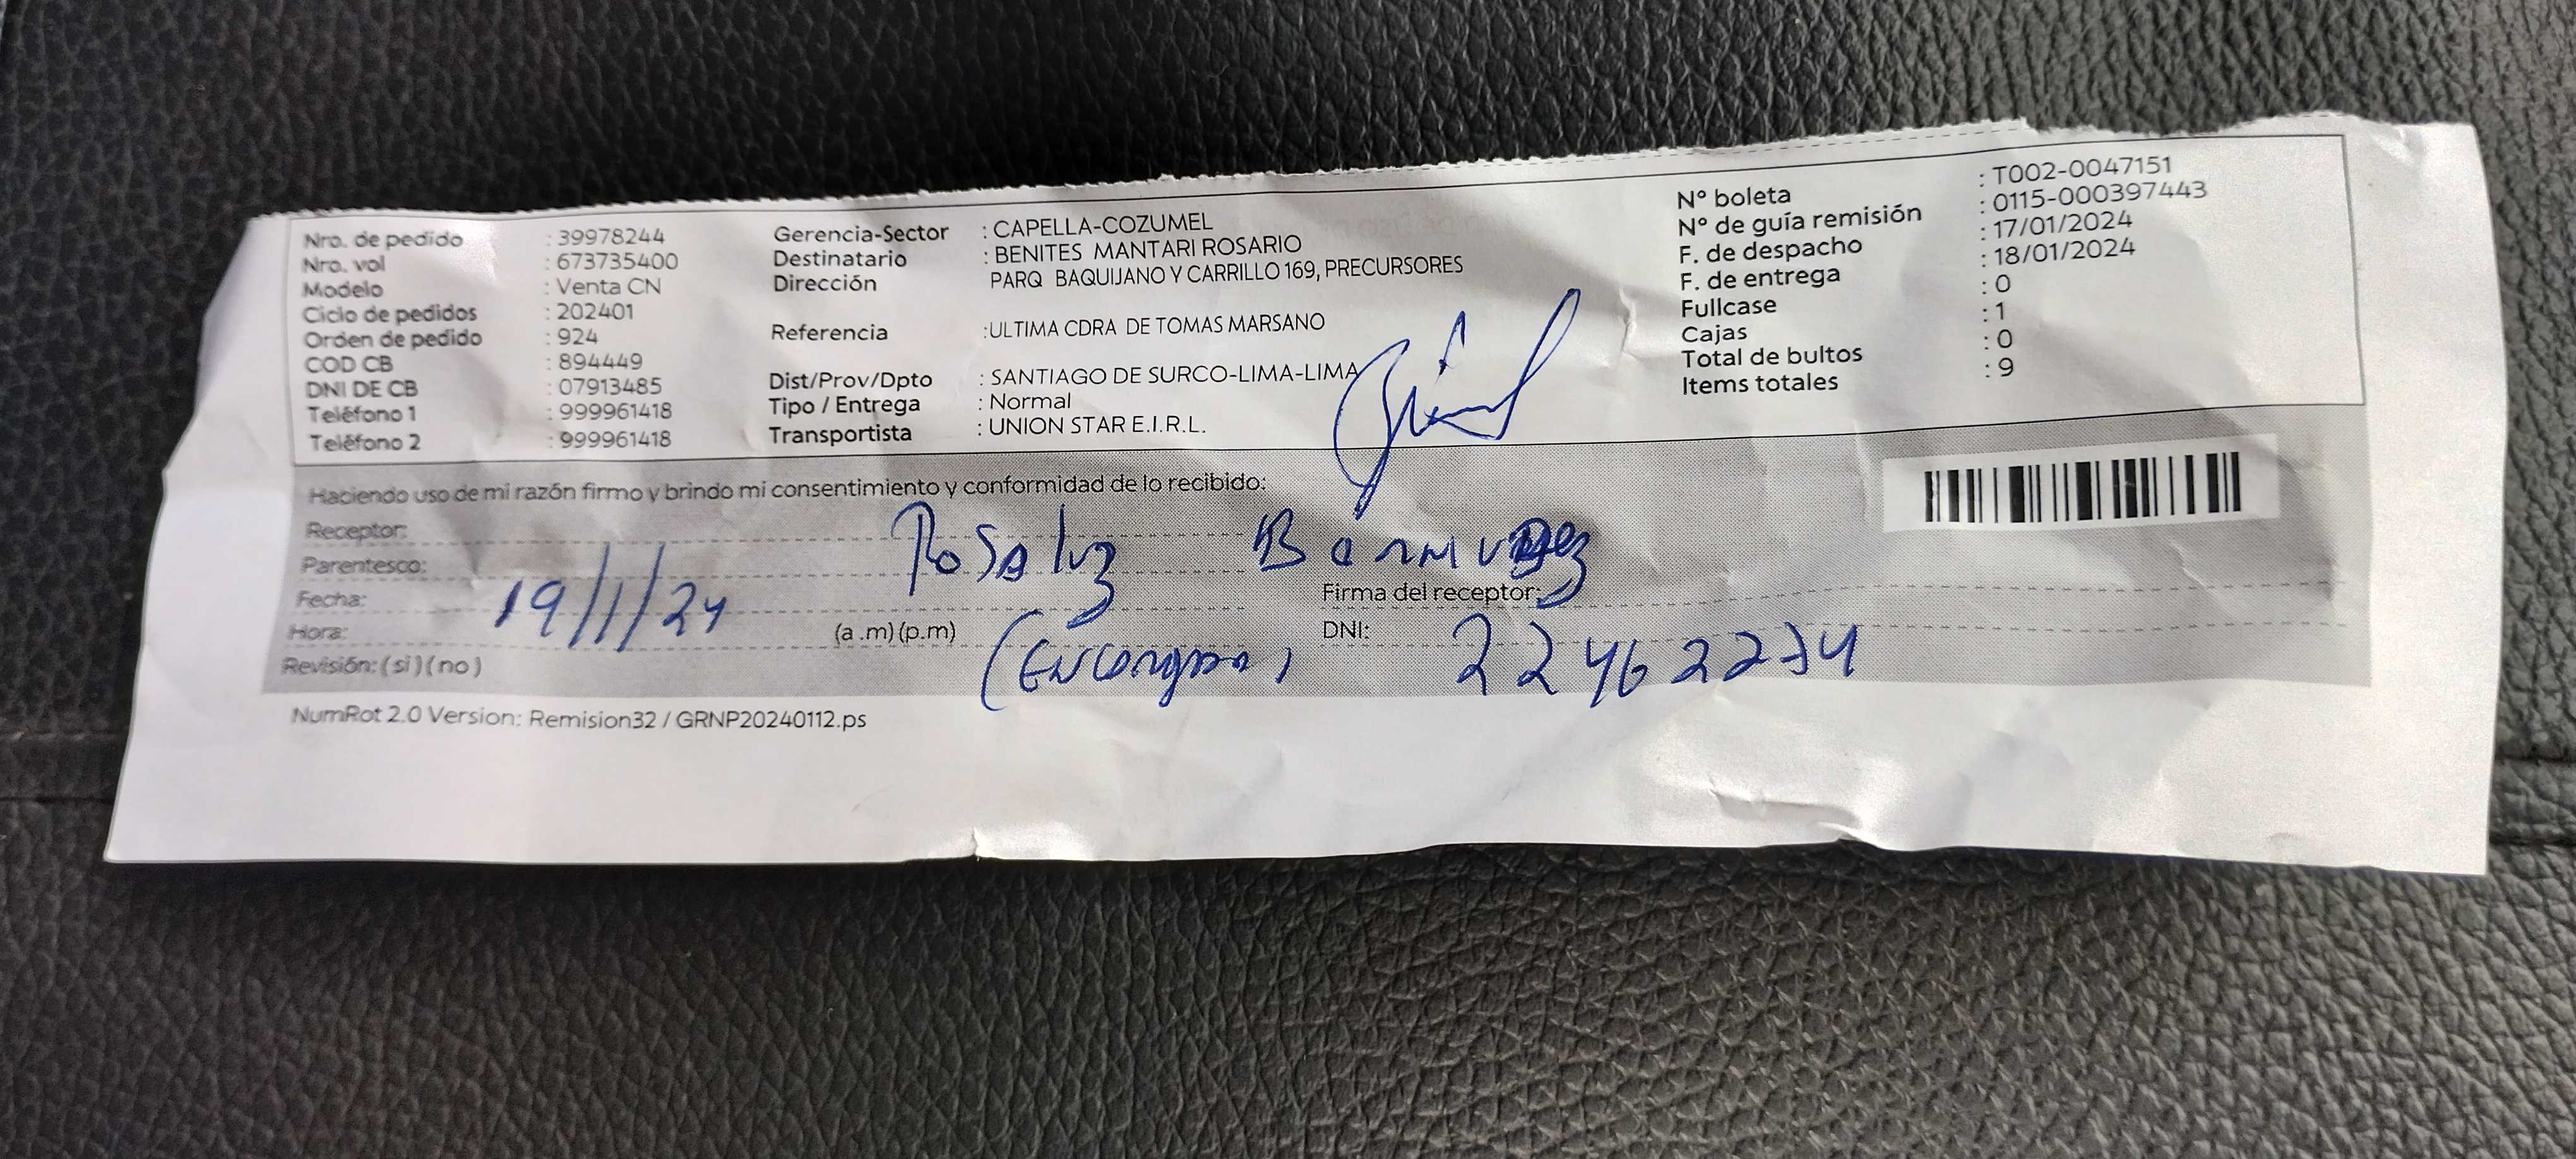 Nro. de pedido : 39978244
Nro. vol : 673735400
Modelo : Venta CN
Ciclo de pedidos : 202401
Orden de pedido : 924
COD CB : 894449
DNI DE CB : 07913485
Teléfono 1 : 999961418
Teléfono 2 : 999961418
Gerencia-Sector : CAPELLA-COZUMEL
Destinatario : BENITES MANTARI ROSARIO
Dirección PARQ BAQUIJANO Y CARRILLO 169, PRECURSORES
Referencia :ULTIMA CDRA DE TOMAS MARSANO
Dist/Prov/Dpto : SANTIAGO DE SURCO-LIMA-LIMA
Tipo / Entrega : Normal
Transportista : UNION STAR E.I.R.L.
N° boleta : T002-0047151
N° de guía remisión : 0115-000397443
F. de despacho : 17/01/2024
F. de entrega : 18/01/2024
Fullcase : 0
Cajas : 1
Total de bultos : 0
Items totales : 9
Haciendo uso de mi razón firmo y brindo mi consentimiento y conformidad de lo recibido:
Receptor: Rosaluz Bermudez
Parentesco:
Fecha: 19/1/24 Firma del receptor:
Hora: (a.m)(p.m) DNI: 22462274
Revisión: (si)(no)
NumRot 2.0 Version: Remision32 / GRNP20240112.ps